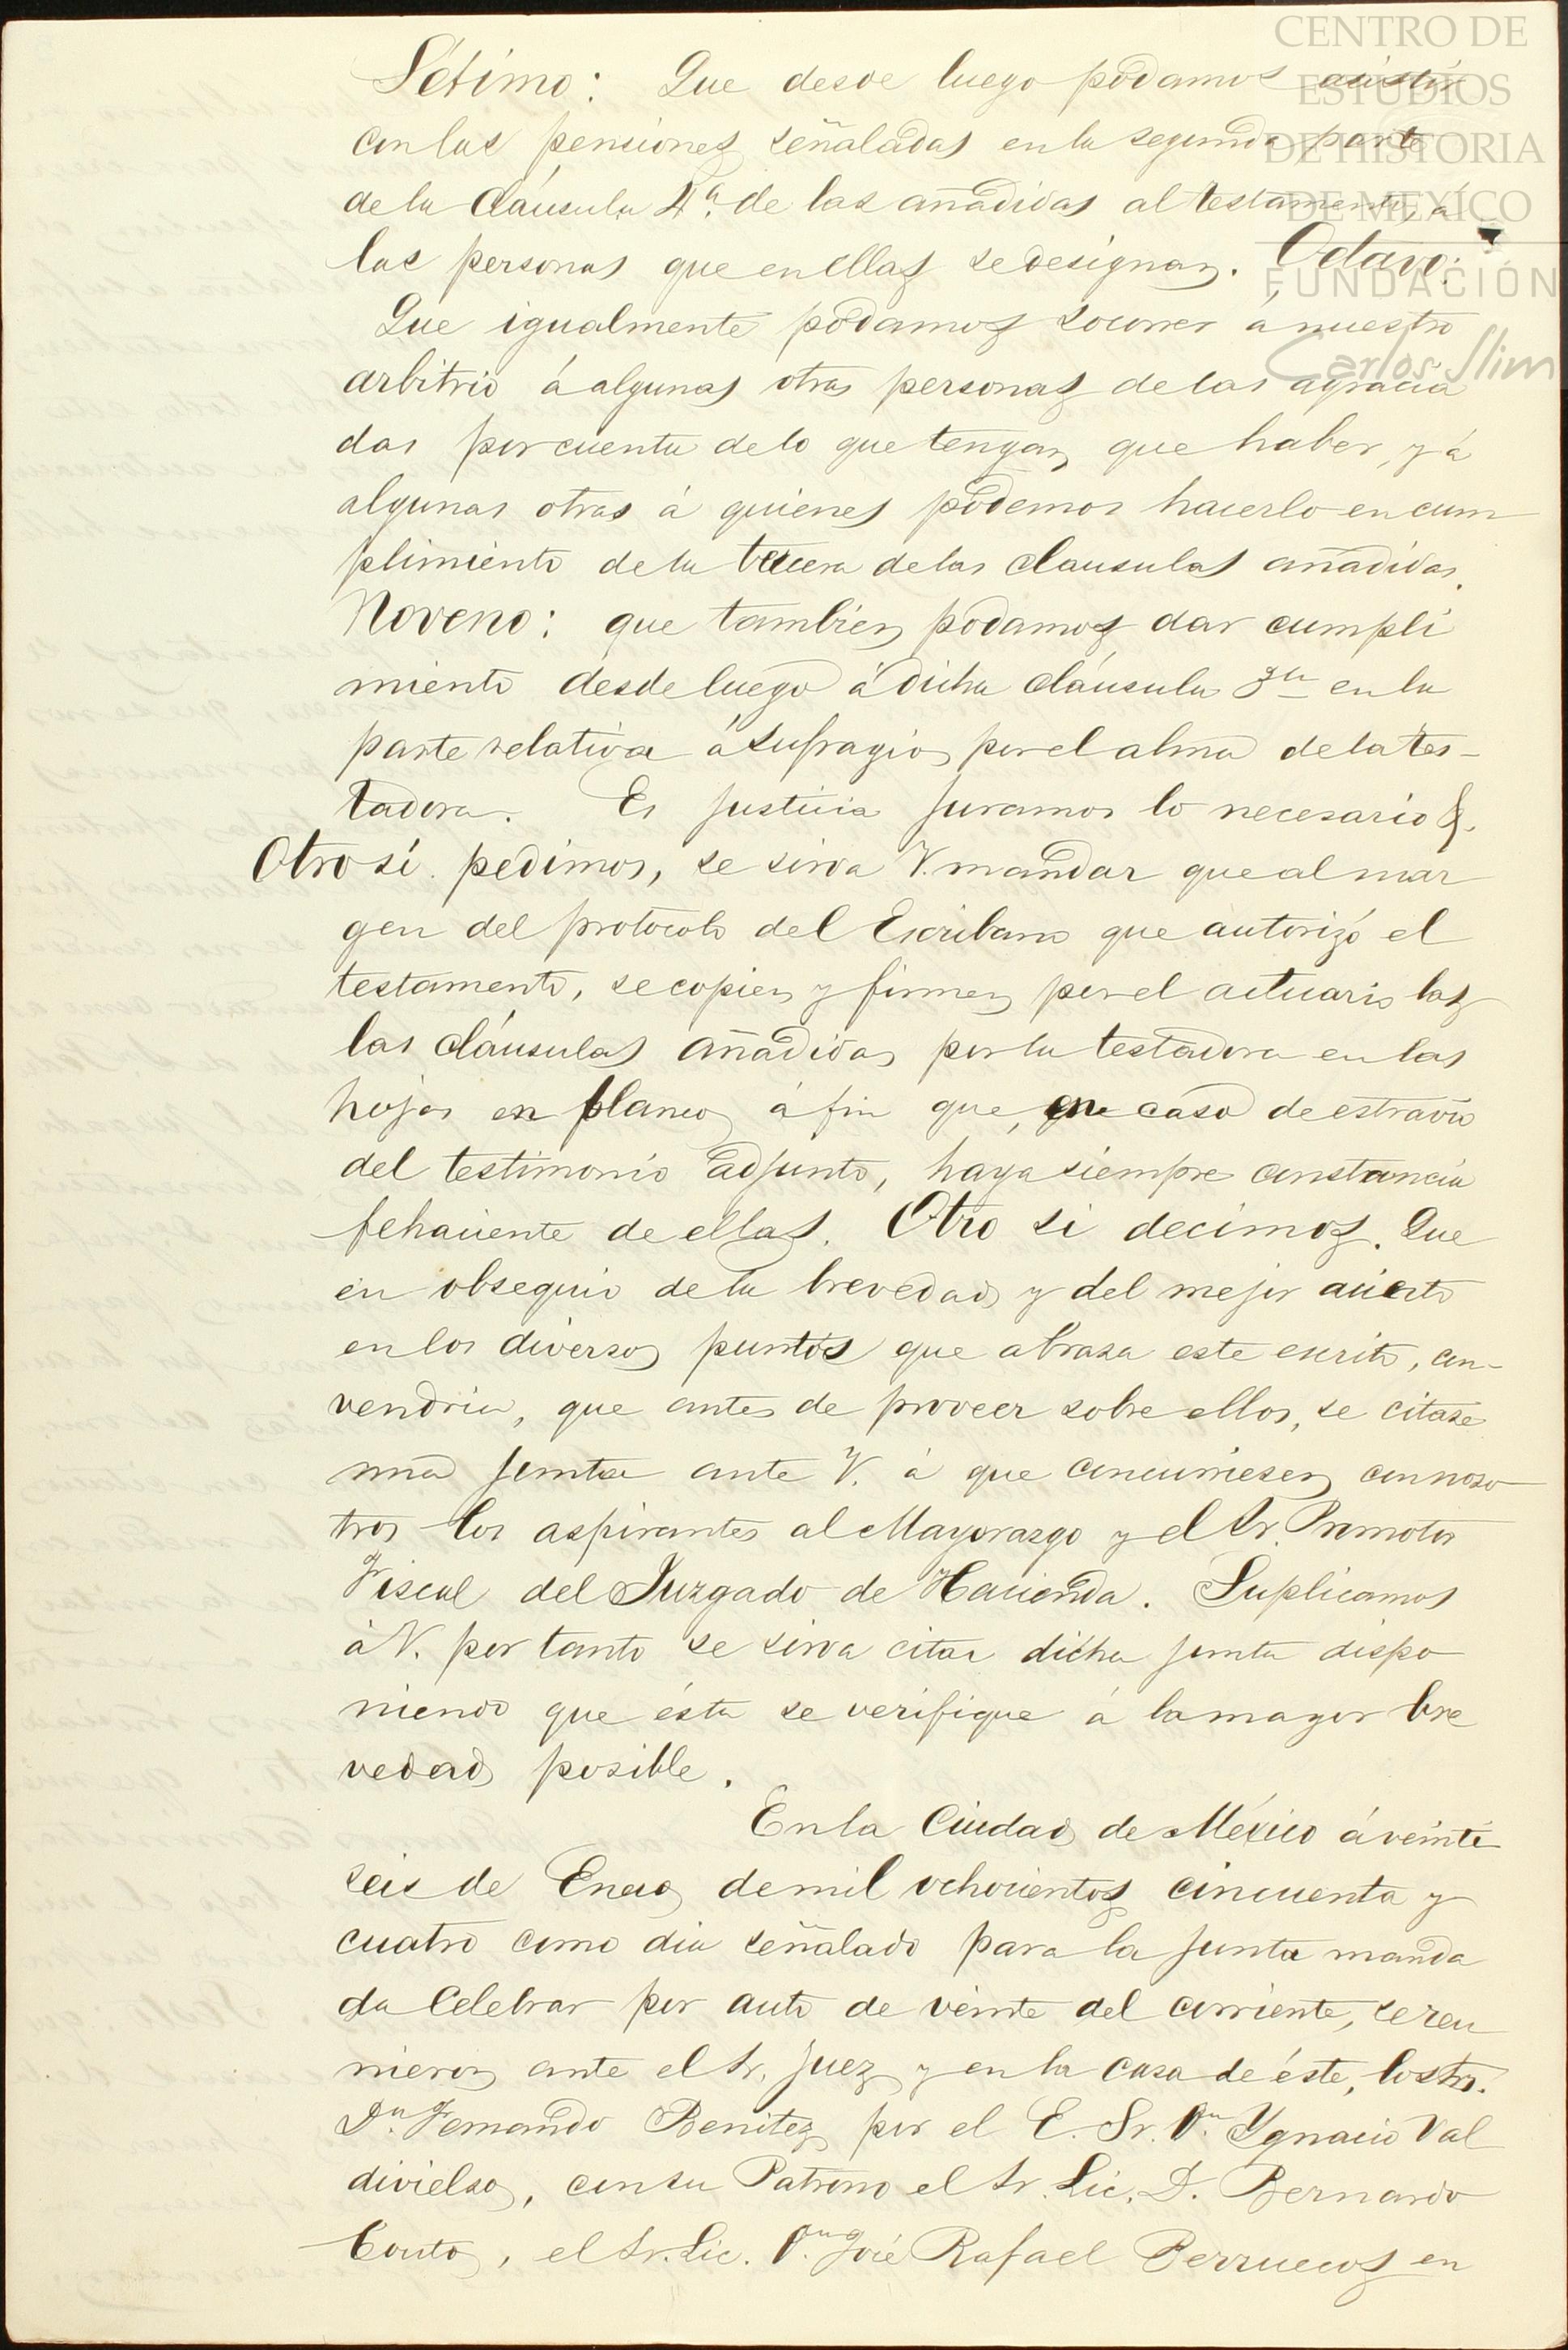 CENTRO DE
ESTUDIOS
DE HISTORIA
DE MEXÍCO
FUNDACIÓN
Carlos Slim
Sétimo: Que desde luego podamos asistir
con las pensiones señaladas en la segunda parte
de la cláusula 4ª. de las añadidas al testamento, a
las personas que en ellas se designan. Octavo:
Que igualmente podamos socorrer á nuestro
arbitrio á algunas otras personas de las agracia
das por cuenta de lo que tengan que haber, y á
algunas otras á quienes podemos hacerlo en cum
plimiento de la tercera de las clausulas añadidas.
Noveno: que tambien podamos dar cumpli
miento desde luego á dicha cláusula 3ª en la
parte relativa á sufragios por el alma de la tes-
tadora. Es justicia juramos lo necesario &.
Otro sí pedimos, se sirva V. mandar que al mar
gen del protocolo del Escribano que autorizó el
testamento, se copien y firmen por el actuario las
las cláusulas añadidas por la testadora en las
hojas en blanco á fin que, en caso de estravio
del testimonio adjunto, haya siempre constancia
fehaciente de ellas. Otro si decimos. Que
en obsequio de la brevedad y del mejor acierto
en los diversos puntos que abraza este escrito, con-
vendria, que antes de proveer sobre ellos, se citase
una junta ante V. á que concurriesen con noso
tros los aspirantes al Mayorazgo y el Sr. Promotor
Fiscal del Juzgado de Hacienda. Suplicamos
á V. por tanto se sirva citar dicha junta dispo
niendo que ésta se verifique á la mayor bre
vedad posible.
En la Ciudad de México á veinte
seis de Enero de mil ochocientos cincuenta y
cuatro como dia señalado para la junta manda
da celebrar por auto de veinte del corriente, se reu
nieron ante el Sr. Juez y en la casa de éste, los Srs.
Dn. Fernando Benitez por el E. Sr. Dn. Ygnacio Val
divielso, con su Patrono el Sr. Lic. D. Bernardo
Couto, el Sr. Lic. Dn. José Rafael Berruecos en